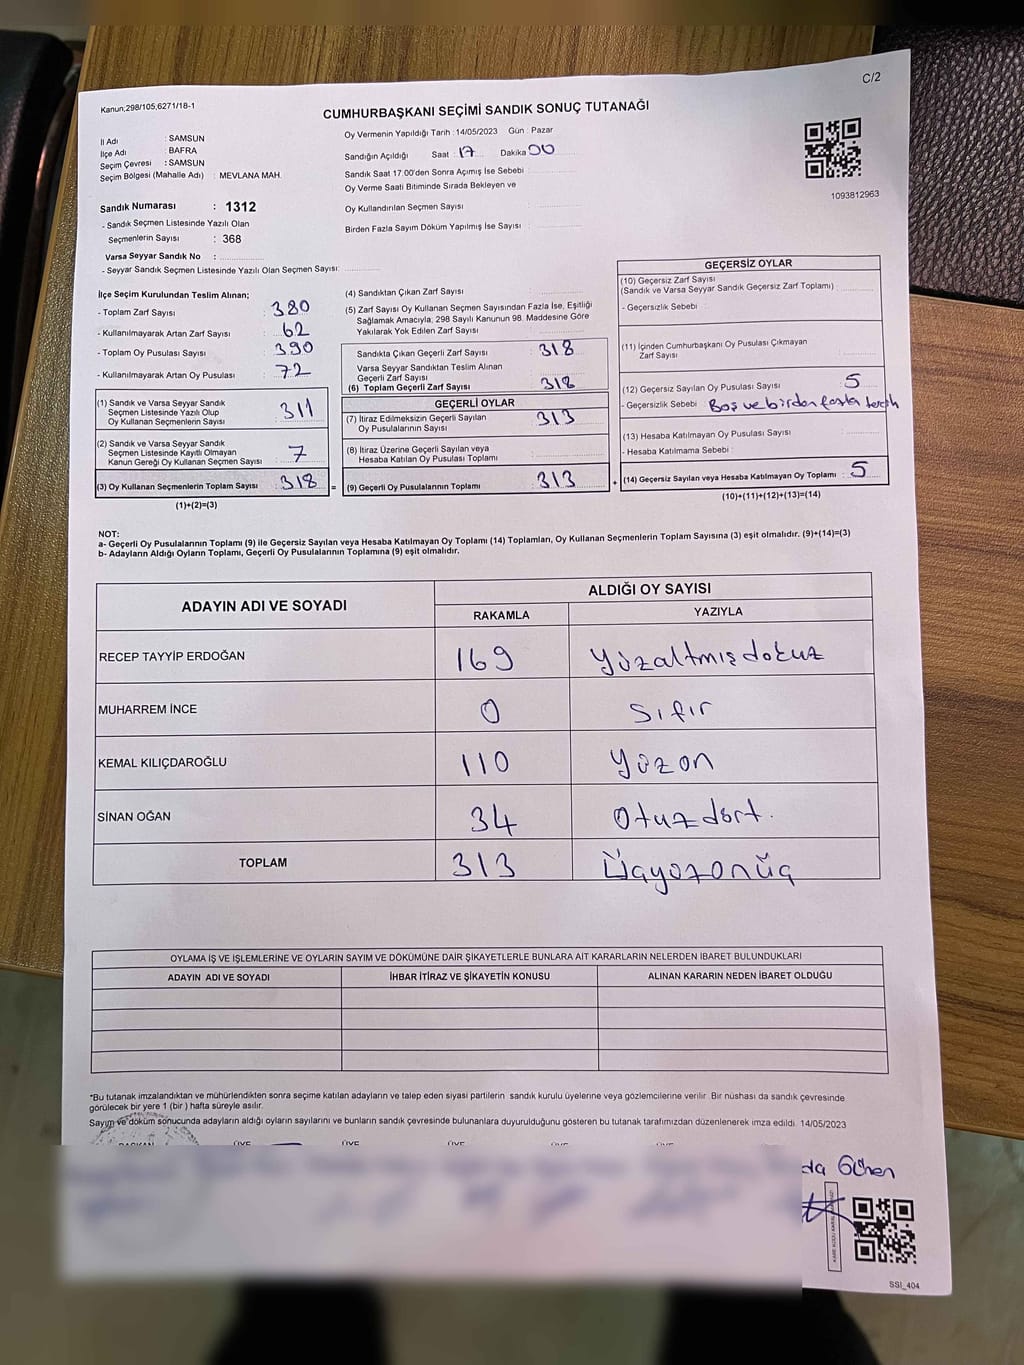 C/2
Kanun;298/105,6271/18-1
CUMHURBAŞKANI SEÇİMİ SANDIK SONUÇ TUTANAĞI
İl Adı : SAMSUN
İlçe Adı : BAFRA
Seçim Çevresi : SAMSUN
Seçim Bölgesi (Mahalle Adı) : MEVLANA MAH.
Oy Vermenin Yapıldığı Tarih : 14/05/2023 Gün : Pazar
Sandığın Açıldığı Saat : 17 Dakika 00
Sandık Saat 17.00'den Sonra Açımış İse Sebebi
Oy Verme Saati Bitiminde Sırada Bekleyen ve
Oy Kullandırılan Seçmen Sayısı
Birden Fazla Sayım Döküm Yapılmış İse Sayısı :
1093812963
Sandık Numarası : 1312
- Sandık Seçmen Listesinde Yazılı Olan
Seçmenlerin Sayısı : 368
Varsa Seyyar Sandık No :
- Seyyar Sandık Seçmen Listesinde Yazılı Olan Seçmen Sayısı:
İlçe Seçim Kurulundan Teslim Alınan;
- Toplam Zarf Sayısı : 380
- Kullanılmayarak Artan Zarf Sayısı : 62
- Toplam Oy Pusulası Sayısı : 390
- Kullanılmayarak Artan Oy Pusulası : 72
(1) Sandık ve Varsa Seyyar Sandık
Seçmen Listesinde Yazılı Olup
Oy Kullanan Seçmenlerin Sayısı : 311
(2) Sandık ve Varsa Seyyar Sandık
Seçmen Listesinde Kayıtlı Olmayan
Kanun Gereği Oy Kullanan Seçmen Sayısı : 7
(3) Oy Kullanan Seçmenlerin Toplam Sayısı : 318
(1)+(2)=(3)
(4) Sandıktan Çıkan Zarf Sayısı
(5) Zarf Sayısı Oy Kullanan Seçmen Sayısından Fazla İse, Eşitliği
Sağlamak Amacıyla; 298 Sayılı Kanunun 98. Maddesine Göre
Yakılarak Yok Edilen Zarf Sayısı
Sandıkta Çıkan Geçerli Zarf Sayısı : 318
Varsa Seyyar Sandıktan Teslim Alınan
Geçerli Zarf Sayısı
(6) Toplam Geçerli Zarf Sayısı : 318
GEÇERLİ OYLAR
(7) İtiraz Edilmeksizin Geçerli Sayılan
Oy Pusulalarının Sayısı : 313
(8) İtiraz Üzerine Geçerli Sayılan veya
Hesaba Katılan Oy Pusulası Toplamı
= (9) Geçerli Oy Pusulalarının Toplamı : 313
GEÇERSİZ OYLAR
(10) Geçersiz Zarf Sayısı
(Sandık ve Varsa Seyyar Sandık Geçersiz Zarf Toplamı) :
- Geçersizlik Sebebi :
(11) İçinden Cumhurbaşkanı Oy Pusulası Çıkmayan
Zarf Sayısı
(12) Geçersiz Sayılan Oy Pusulası Sayısı : 5
- Geçersizlik Sebebi : Boş ve birden fazla tercih
(13) Hesaba Katılmayan Oy Pusulası Sayısı :
- Hesaba Katılmama Sebebi :
+ (14) Geçersiz Sayılan veya Hesaba Katılmayan Oy Toplamı : 5
(10)+(11)+(12)+(13)=(14)
NOT:
a- Geçerli Oy Pusulalarının Toplamı (9) ile Geçersiz Sayılan veya Hesaba Katılmayan Oy Toplamı (14) Toplamları, Oy Kullanan Seçmenlerin Toplam Sayısına (3) eşit olmalıdır. (9)+(14)=(3)
b- Adayların Aldığı Oyların Toplamı, Geçerli Oy Pusulalarının Toplamına (9) eşit olmalıdır.
ADAYIN ADI VE SOYADI
ALDIĞI OY SAYISI
RAKAMLA YAZIYLA
RECEP TAYYİP ERDOĞAN 169 Yüzaltmışdokuz
MUHARREM İNCE 0 Sıfır
KEMAL KILIÇDAROĞLU 110 Yüzon
SİNAN OĞAN 34 Otuzdört.
TOPLAM 313 Üçyüzonüç
OYLAMA İŞ VE İŞLEMLERİNE VE OYLARIN SAYIM VE DÖKÜMÜNE DAİR ŞİKAYETLERLE BUNLARA AİT KARARLARIN NELERDEN İBARET BULUNDUKLARI
ADAYIN ADI VE SOYADI İHBAR İTİRAZ VE ŞİKAYETİN KONUSU ALINAN KARARIN NEDEN İBARET OLDUĞU
*Bu tutanak imzalandıktan ve mühürlendikten sonra seçime katılan adayların ve talep eden siyasi partilerin sandık kurulu üyelerine veya gözlemcilerine verilir. Bir nüshası da sandık çevresinde
görülecek bir yere 1 (bir ) hafta süreyle asılır.
Sayım ve döküm sonucunda adayların aldığı oyların sayılarını ve bunların sandık çevresinde bulunanlara duyurulduğunu gösteren bu tutanak tarafımızdan düzenlenerek imza edildi. 14/05/2023
BAŞKAN ÜYE ÜYE ÜYE ÜYE ÜYE
da Gönen
SSI_404